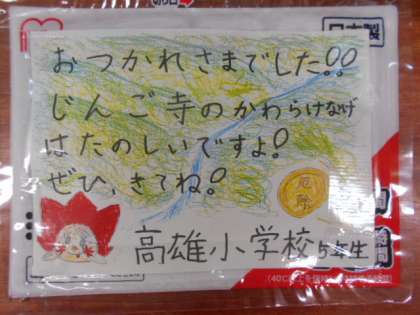 日本製
おつかれさまでした!!
じんご寺のかわらけなげ
はたのしいですよ!
ぜひ、きてね!
厄除
高雄小学校5年生